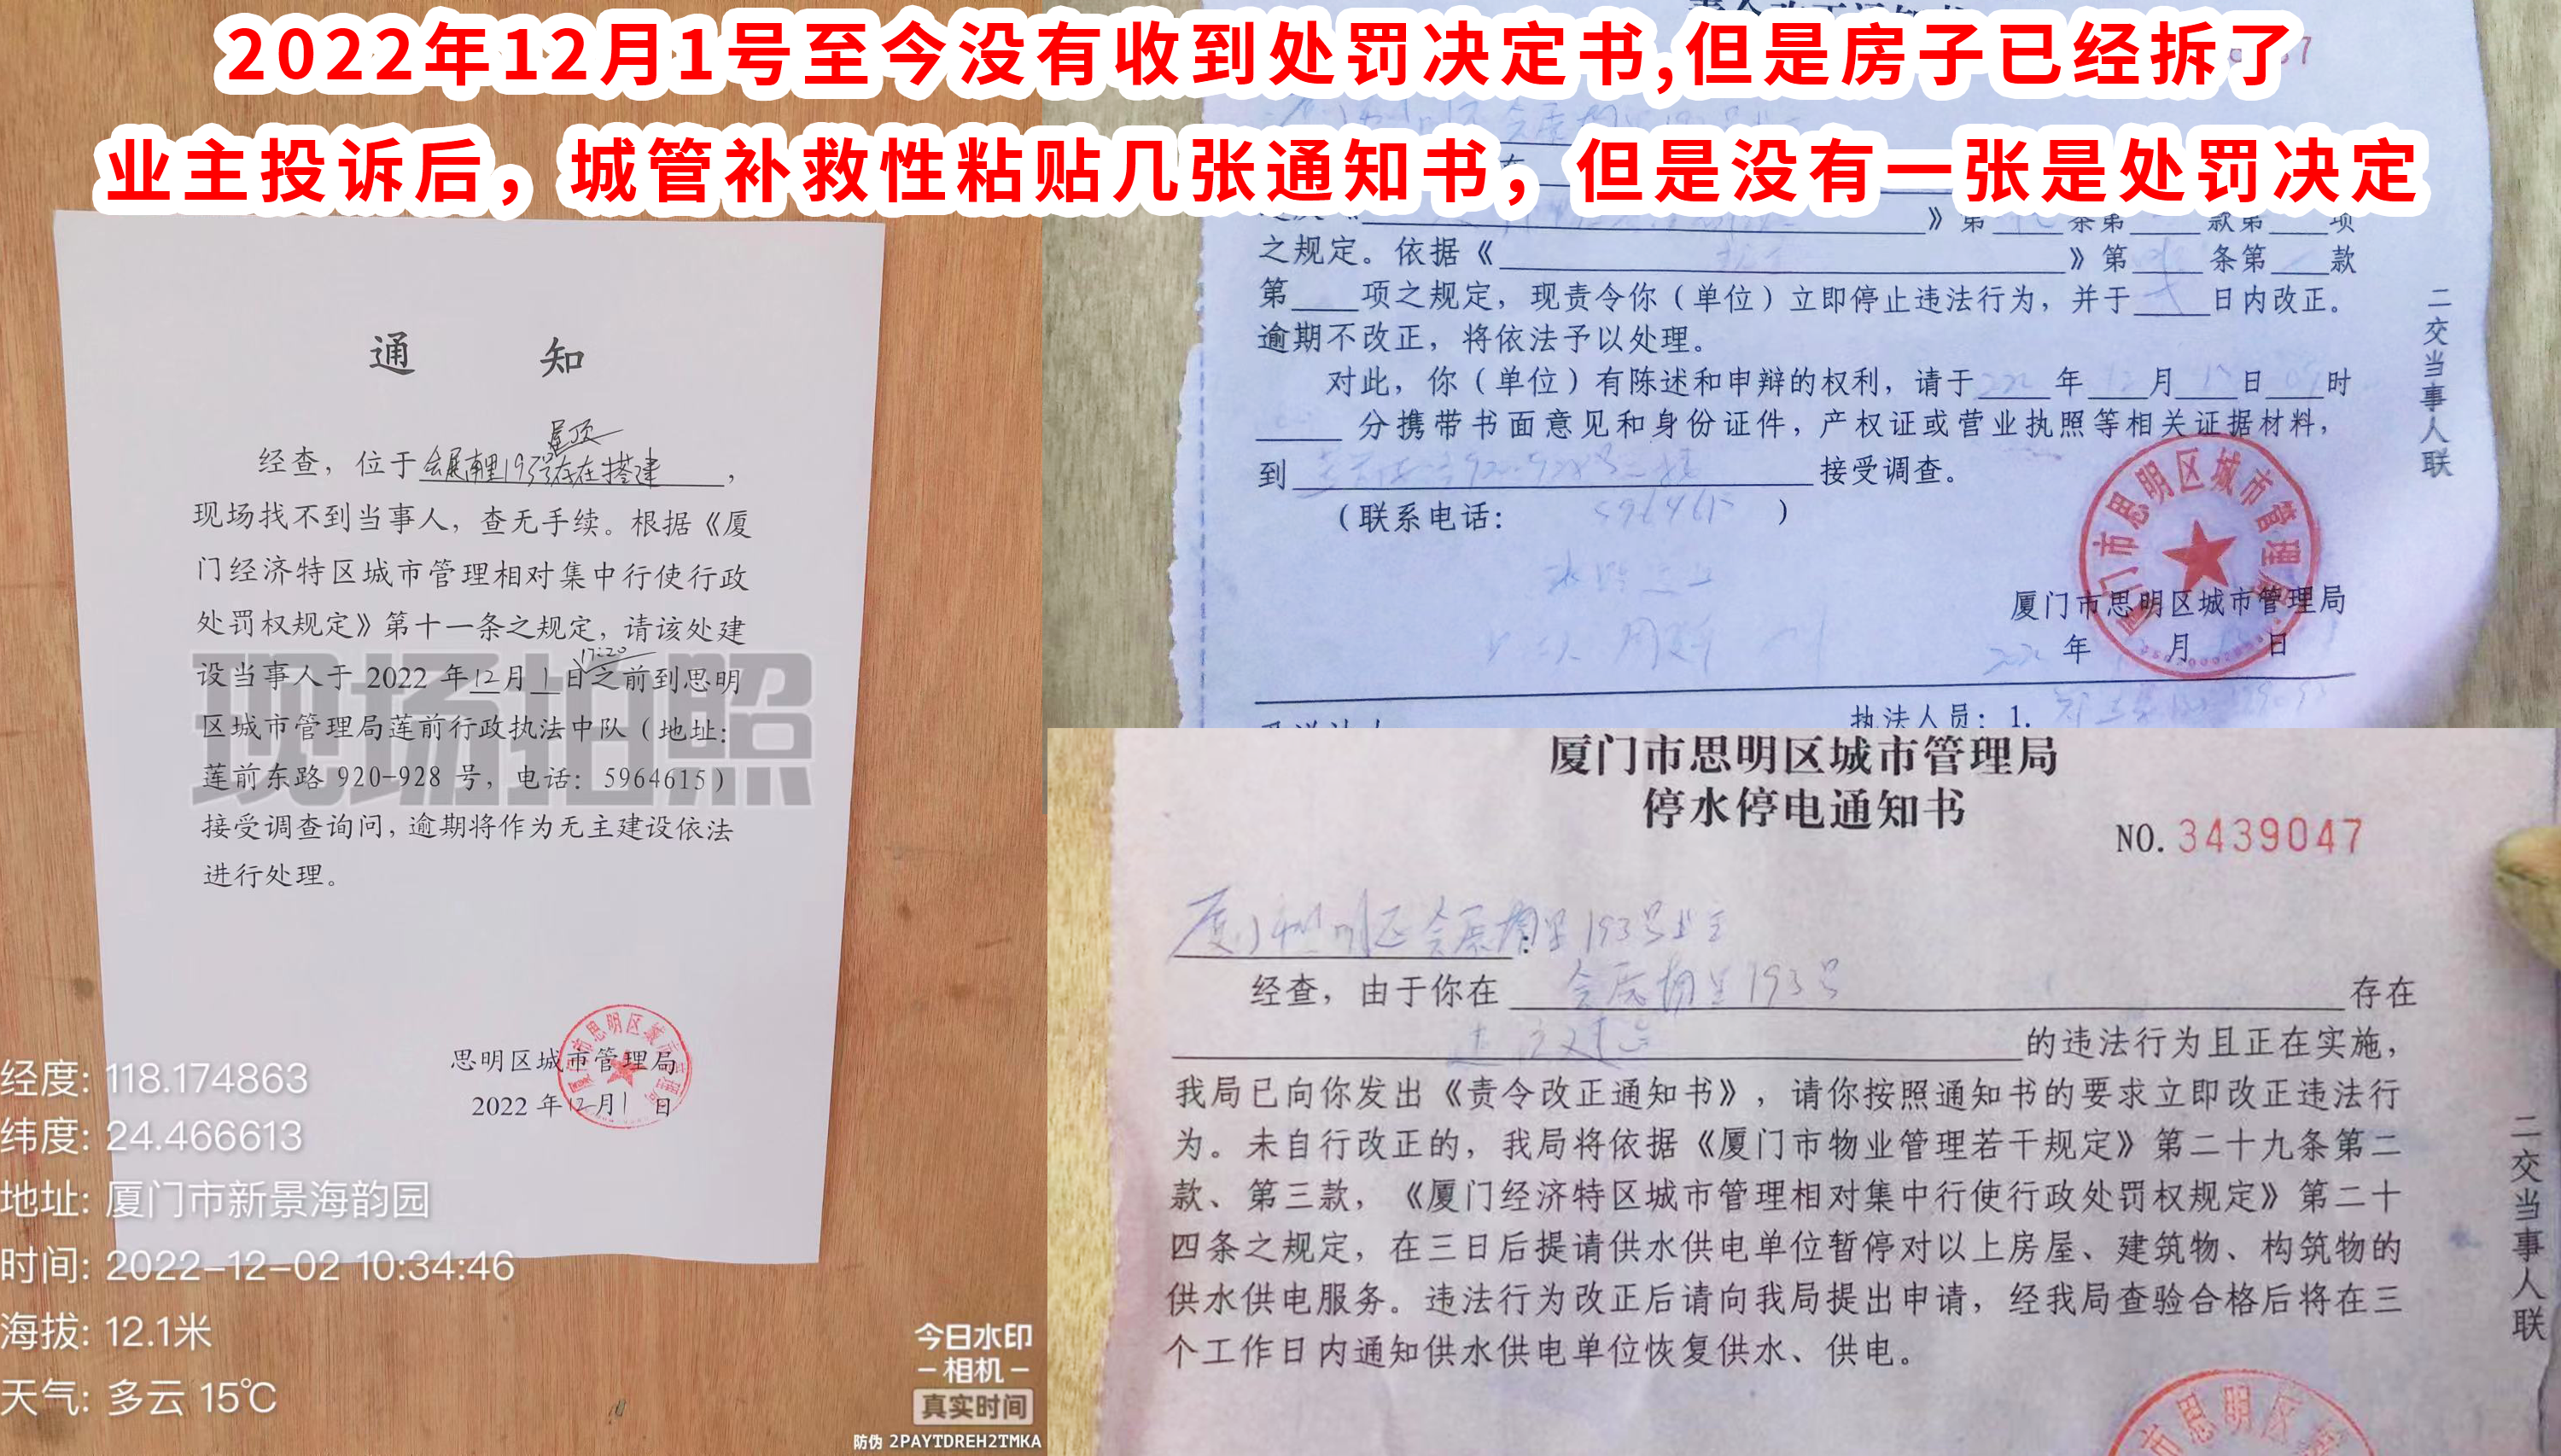 2022年12月1号至今没有收到处罚决定书,但是房子已经拆了
业主投诉后，城管补救性粘贴几张通知书，但是没有一张是处罚决定
通 知
屋顶
经查，位于会展南里193号存在搭建，
现场找不到当事人，查无手续。根据《厦
门经济特区城市管理相对集中行使行政
处罚权规定》第十一条之规定，请该处建
17:20
设当事人于 2022 年12月1日之前到思明
区城市管理局莲前行政执法中队（地址：
莲前东路 920-928 号，电话：5964615）
接受调查询问，逾期将作为无主建设依法
进行处理。
思明区城市管理局
2022 年12月1日
现场拍照
经度: 118.174863
纬度: 24.466613
地址: 厦门市新景海韵园
时间: 2022-12-02 10:34:46
海拔: 12.1米
天气: 多云 15℃
今日水印
-相机-
真实时间
防伪 2PAYTDREH2TMKA
》第 条第 款第 项
之规定。依据《 》第 条第 款
第 项之规定，现责令你（单位）立即停止违法行为，并于 日内改正。
逾期不改正，将依法予以处理。
对此，你（单位）有陈述和申辩的权利，请于 年 12月 日 09时
分携带书面意见和身份证件，产权证或营业执照等相关证据材料，
到 920-928号二楼 接受调查。
（联系电话： 5964615 ）
厦门市思明区城市管理局
年 月 日
执法人员：1.
二交当事人联
厦门市思明区城市管理局
停水停电通知书
NO. 3439047
厦门市思明区会展南里193号业主：
经查，由于你在 会展南里193号 存在
违法建设 的违法行为且正在实施，
我局已向你发出《责令改正通知书》，请你按照通知书的要求立即改正违法行
为。未自行改正的，我局将依据《厦门市物业管理若干规定》第二十九条第二
款、第三款，《厦门经济特区城市管理相对集中行使行政处罚权规定》第二十
四条之规定，在三日后提请供水供电单位暂停对以上房屋、建筑物、构筑物的
供水供电服务。违法行为改正后请向我局提出申请，经我局查验合格后将在三
个工作日内通知供水供电单位恢复供水、供电。
二交当事人联